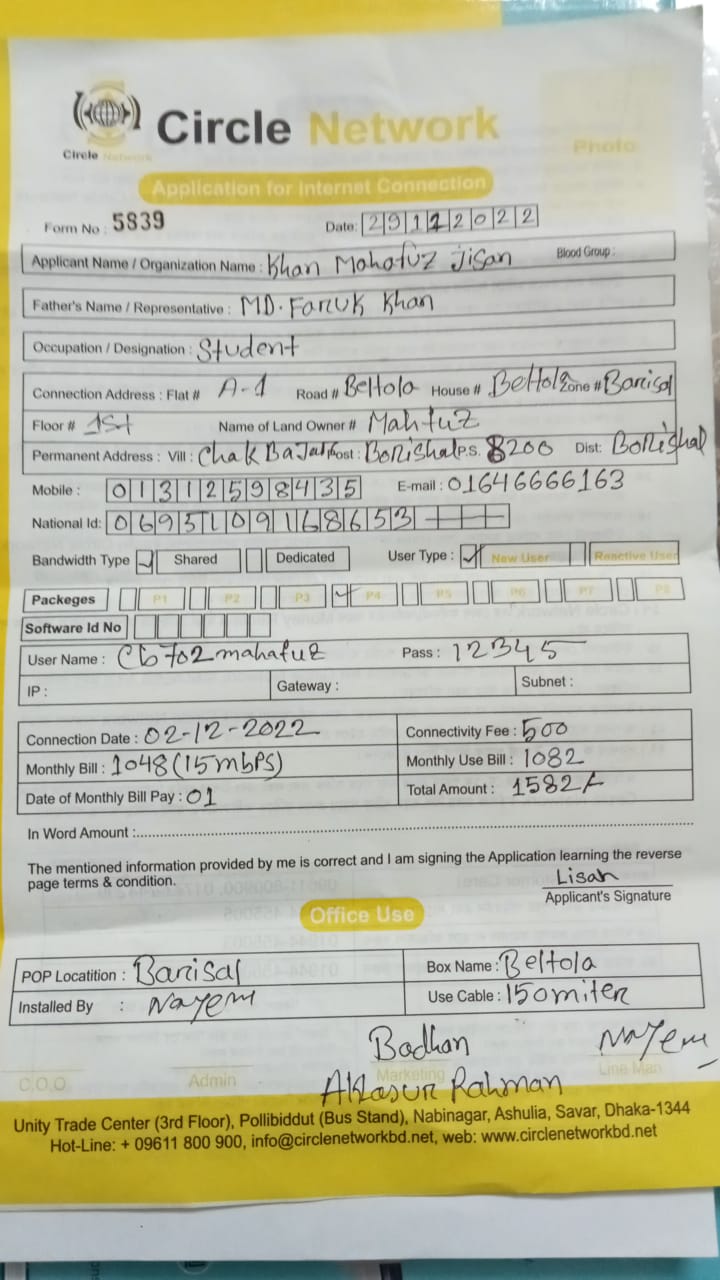 Circle Network
Circle Network
Photo
Application for Internet Connection
Form No : 5839 Date: 29112022
Applicant Name / Organization Name : Khan Mahafuz Jisan Blood Group :
Father's Name / Representative : MD. Faruk Khan
Occupation / Designation : Student
Connection Address : Flat # A-1 Road # Beltola House # Beltola Zone # Barisal
Floor # 1st Name of Land Owner # Mahfuz
Permanent Address : Vill : Chak Bajar Post : Borishal P.S. 8200 Dist: Borishal
Mobile : 01312598435 E-mail : 01646666163
National Id: 0695109168653
Bandwidth Type Shared Dedicated User Type : New User Reactive User
Packeges P1 P2 P3 P4 P5 P6 P7 P8
Software Id No
User Name : Cb702mahafuz Pass : 12345
IP : Gateway : Subnet :
Connection Date : 02-12-2022 Connectivity Fee : 500
Monthly Bill : 1048 (15mbps) Monthly Use Bill : 1082
Date of Monthly Bill Pay : 01 Total Amount : 1582/-
In Word Amount :
The mentioned information provided by me is correct and I am signing the Application learning the reverse
page terms & condition.
Lisan
Applicant's Signature
Office Use
POP Locatition : Barisal Box Name : Beltola
Installed By : Nayem Use Cable : 150miter
Badhan Nayem
C.O.O Admin Marketing Line Man
Rahman
Unity Trade Center (3rd Floor), Pollibiddut (Bus Stand), Nabinagar, Ashulia, Savar, Dhaka-1344
Hot-Line: + 09611 800 900, info@circlenetworkbd.net, web: www.circlenetworkbd.net